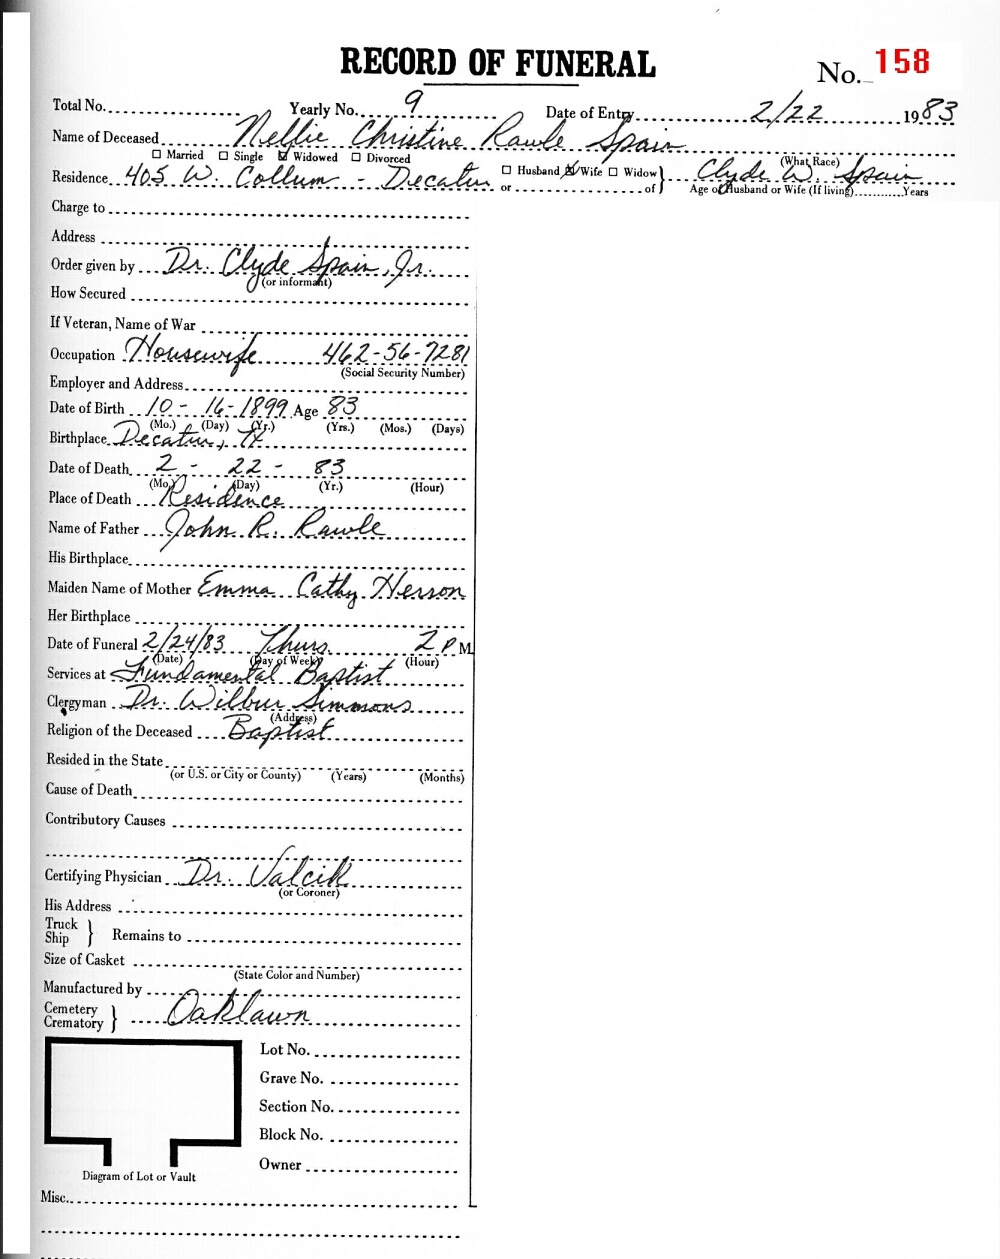 RECORD OF FUNERAL
No. 158
Total No. Yearly No. 9 Date of Entry 2/22 1983
Name of Deceased Nellie Christine Rawle Spain
(What Race)
☐ Married ☐ Single ☑ Widowed ☐ Divorced ☐ Husband ☑ Wife ☐ Widow
Residence 405 W. Collum - Decatur or of } Clyde W. Spain
Age of Husband or Wife (If living) Years
Charge to
Address
Order given by Dr. Clyde Spain, Jr.
(or informant)
How Secured
If Veteran, Name of War
Occupation Housewife 462-56-7281
(Social Security Number)
Employer and Address
Date of Birth 10 - 16 - 1899 Age 83
(Mo.) (Day) (Yr.) (Yrs.) (Mos.) (Days)
Birthplace Decatur, TX
Date of Death 2 - 22 - 83
(Mo.) (Day) (Yr.) (Hour)
Place of Death Residence
Name of Father John R. Rawle
His Birthplace
Maiden Name of Mother Emma Cathy Herson
Her Birthplace
Date of Funeral 2/24/83 Thurs. 2 P.M.
(Date) (Day of Week) (Hour)
Services at Fundamental Baptist
Clergyman Dr. Wilbur Simmons
(Address)
Religion of the Deceased Baptist
Resided in the State
(or U.S. or City or County) (Years) (Months)
Cause of Death
Contributory Causes
Certifying Physician Dr. Valcik
(or Coroner)
His Address
Truck
Ship } Remains to
Size of Casket
(State Color and Number)
Manufactured by
Cemetery
Crematory } Oaklawn
Lot No.
Grave No.
Section No.
Block No.
Owner
Diagram of Lot or Vault
Misc.